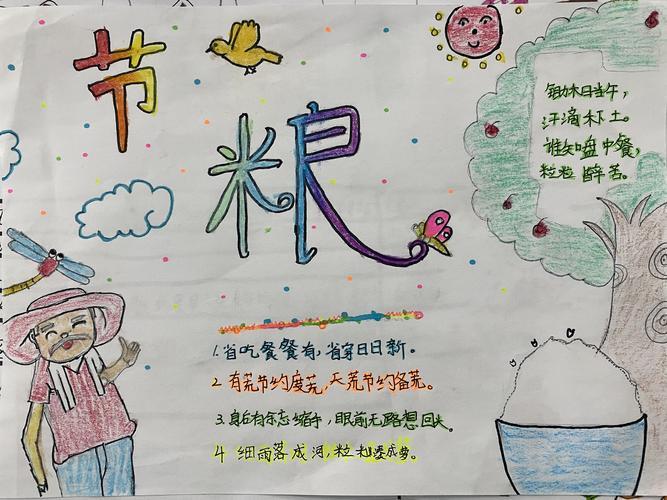 节粮
锄禾日当午,
汗滴禾下土。
谁知盘中餐,
粒粒皆辛苦。
1.省吃餐餐有,省穿日日新。
2.有荒节约度荒,无荒节约备荒。
3.身后有余忘缩手,眼前无路想回头。
4 细雨落成河,粒米凑成箩。